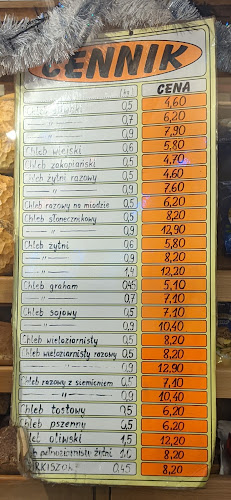 CENNIK
(kg) CENA
Chleb 0,5 4,60
—"— 0,7 6,20
—"— 0,9 7,90
Chleb wiejski 0,6 5,80
Chleb zakopiański 0,5 4,70
Chleb żytni razowy 0,5 4,60
—"— 0,9 7,60
Chleb razowy na miodzie 0,5 6,20
Chleb słonecznikowy 0,5 8,20
—"— 0,9 12,90
Chleb żytni 0,6 5,80
—"— 0,9 8,20
—"— 1,4 12,20
Chleb graham 0,45 5,10
—"— 0,7 7,10
Chleb sojowy 0,5 7,10
—"— 0,9 10,40
Chleb wieloziarnisty 0,5 8,20
Chleb wieloziarnisty razowy 0,5 8,20
—"— 0,9 12,90
Chleb razowy z siemieniem 0,5 7,10
—"— 0,9 10,40
Chleb tostowy 0,5 6,20
Chleb pszenny 0,5 6,20
leb oliwski 1,5 12,20
pełnoziarnisty żytni 1,0 8,20
RKISZOW 0,45 8,20